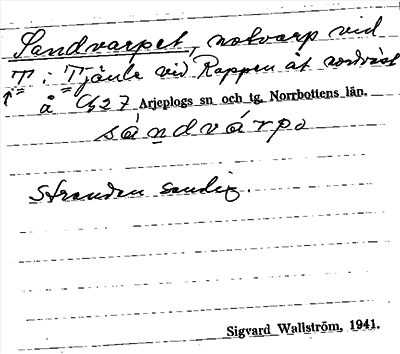 Sandvarpet, notvarp vid
T i Tjäule vid Rappen åt nordväst
å C 27 Arjeplogs sn och tg, Norrbottens län.
sàndvárpə
Stranden sandig.
Sigvard Wallström, 1941.